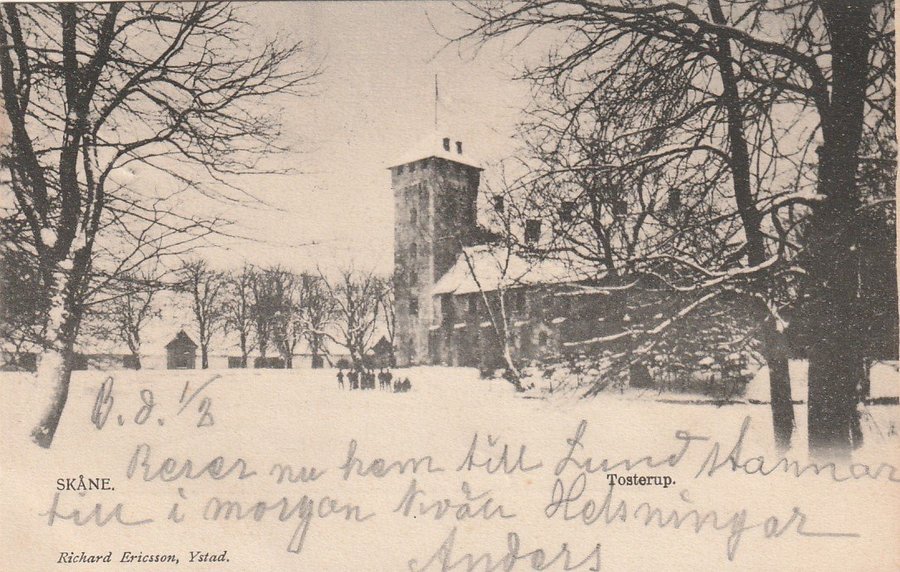 B.d. 1/2
Reser nu hem till Lund stannar
SKÅNE.
Tosterup.
till i morgon kväll Helsningar
Richard Ericsson, Ystad.
Anders